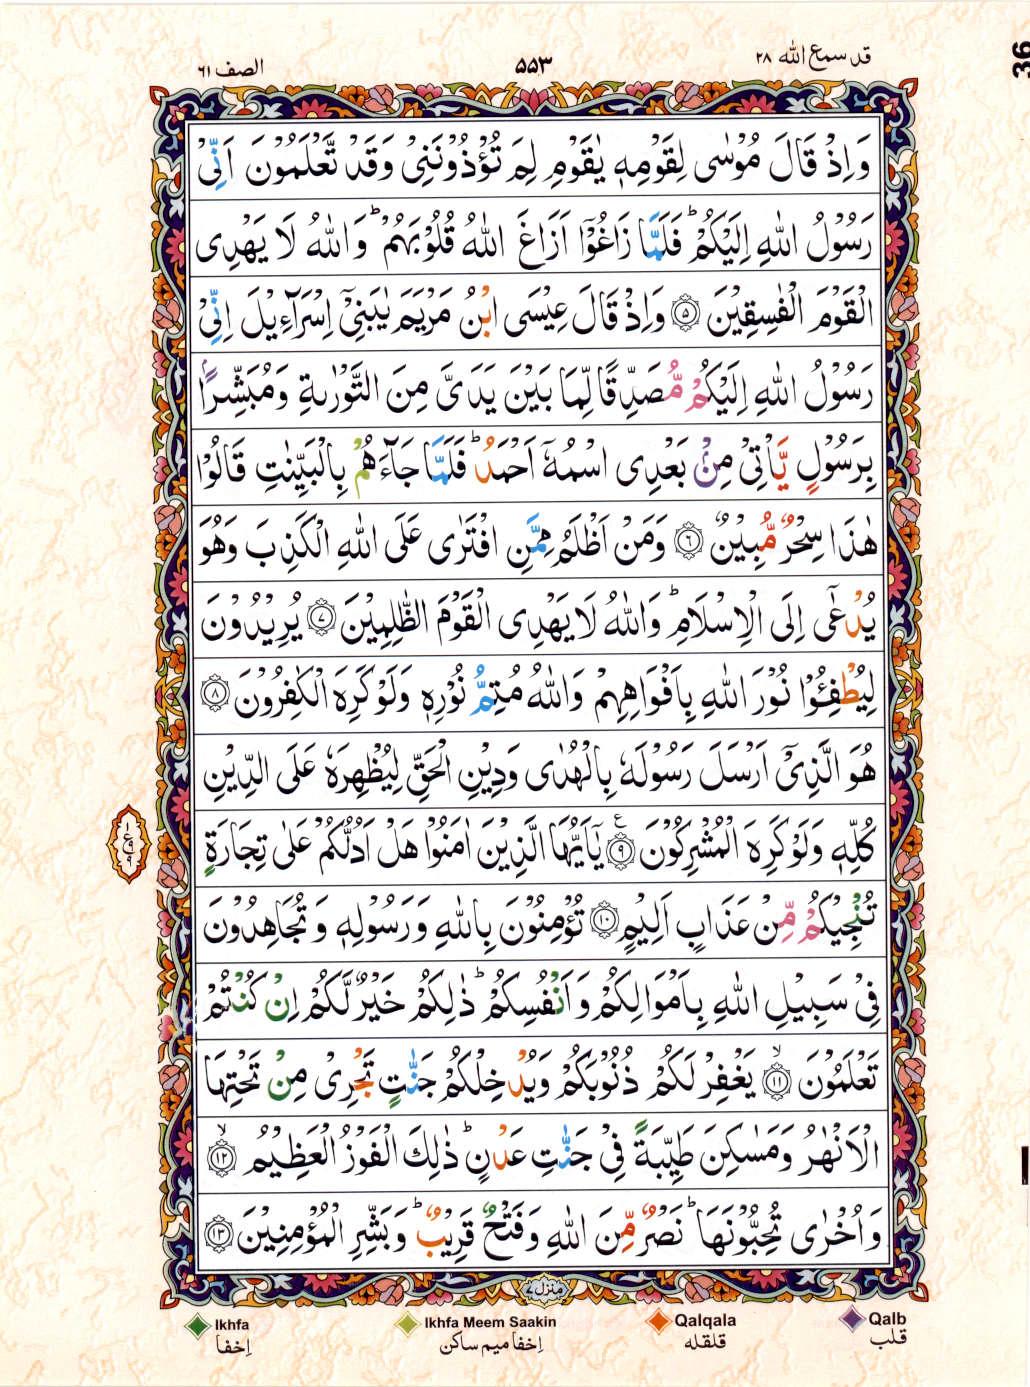 قد سمع الله ٢٨
٥٥٣
الصف ٦١
36
وَاِذْ قَالَ مُوْسٰى لِقَوْمِهٖ يٰقَوْمِ لِمَ تُؤْذُوْنَنِیْ وَقَدْ تَّعْلَمُوْنَ اَنِّیْ
رَسُوْلُ اللّٰهِ اِلَیْكُمْ ؕ فَلَمَّا زَاغُوْۤا اَزَاغَ اللّٰهُ قُلُوْبَهُمْ ؕ وَاللّٰهُ لَا یَهْدِی
الْقَوْمَ الْفٰسِقِیْنَ ﴿۵﴾ وَاِذْ قَالَ عِیْسَی ابْنُ مَرْیَمَ یٰبَنِیْۤ اِسْرَآءِیْلَ اِنِّیْ
رَسُوْلُ اللّٰهِ اِلَیْكُمْ مُّصَدِّقًا لِّمَا بَیْنَ یَدَیَّ مِنَ التَّوْرٰىةِ وَمُبَشِّرًۢا
بِرَسُوْلٍ یَّاْتِیْ مِنْۢ بَعْدِی اسْمُهٗۤ اَحْمَدُ ؕ فَلَمَّا جَآءَهُمْ بِالْبَیِّنٰتِ قَالُوْا
هٰذَا سِحْرٌ مُّبِیْنٌ ﴿۶﴾ وَمَنْ اَظْلَمُ مِمَّنِ افْتَرٰی عَلَی اللّٰهِ الْكَذِبَ وَهُوَ
یُدْعٰۤی اِلَی الْاِسْلَامِ ؕ وَاللّٰهُ لَا یَهْدِی الْقَوْمَ الظّٰلِمِیْنَ ﴿۷﴾ یُرِیْدُوْنَ
لِیُطْفِـُٔوْا نُوْرَ اللّٰهِ بِاَفْوَاهِهِمْ وَاللّٰهُ مُتِمُّ نُوْرِهٖ وَلَوْ كَرِهَ الْكٰفِرُوْنَ ﴿۸﴾
هُوَ الَّذِیْۤ اَرْسَلَ رَسُوْلَهٗ بِالْهُدٰی وَدِیْنِ الْحَقِّ لِیُظْهِرَهٗ عَلَی الدِّیْنِ
كُلِّهٖ وَلَوْ كَرِهَ الْمُشْرِكُوْنَ ﴿۹﴾ ع یٰۤاَیُّهَا الَّذِیْنَ اٰمَنُوْا هَلْ اَدُلُّكُمْ عَلٰی تِجَارَةٍ
تُنْجِیْكُمْ مِّنْ عَذَابٍ اَلِیْمٍ ﴿۱۰﴾ تُؤْمِنُوْنَ بِاللّٰهِ وَرَسُوْلِهٖ وَتُجَاهِدُوْنَ
فِیْ سَبِیْلِ اللّٰهِ بِاَمْوَالِكُمْ وَاَنْفُسِكُمْ ؕ ذٰلِكُمْ خَیْرٌ لَّكُمْ اِنْ كُنْتُمْ
تَعْلَمُوْنَ ﴿۱۱﴾ۙ یَغْفِرْ لَكُمْ ذُنُوْبَكُمْ وَیُدْخِلْكُمْ جَنّٰتٍ تَجْرِیْ مِنْ تَحْتِهَا
الْاَنْهٰرُ وَمَسٰكِنَ طَیِّبَةً فِیْ جَنّٰتِ عَدْنٍ ؕ ذٰلِكَ الْفَوْزُ الْعَظِیْمُ ﴿۱۲﴾ۙ
وَاُخْرٰی تُحِبُّوْنَهَا ؕ نَصْرٌ مِّنَ اللّٰهِ وَفَتْحٌ قَرِیْبٌ ؕ وَبَشِّرِ الْمُؤْمِنِیْنَ ﴿۱۳﴾
منزل ٧
Ikhfa Ikhfa Meem Saakin Qalqala Qalb
إخفا إخفا ميم ساكن قلقله قلب